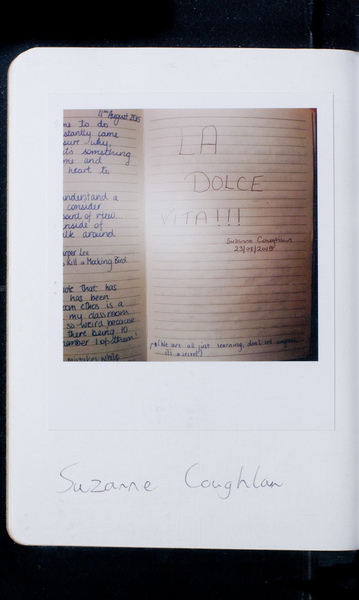 11th August 2013
me to do
stantly came
sure why,
ts something
me and
heart to
understand a
consider
point of view
inside of
alk around
arper Lee
Kill a Mocking Bird
uote that has
has been
oom ethos is a
my classroom
so weird because
there being 10
number 1 of them!
LA
DOLCE
VITA!!!
Suzanne Coughlan
We are all just learning, don't let anyone
Suzanne Coughlan